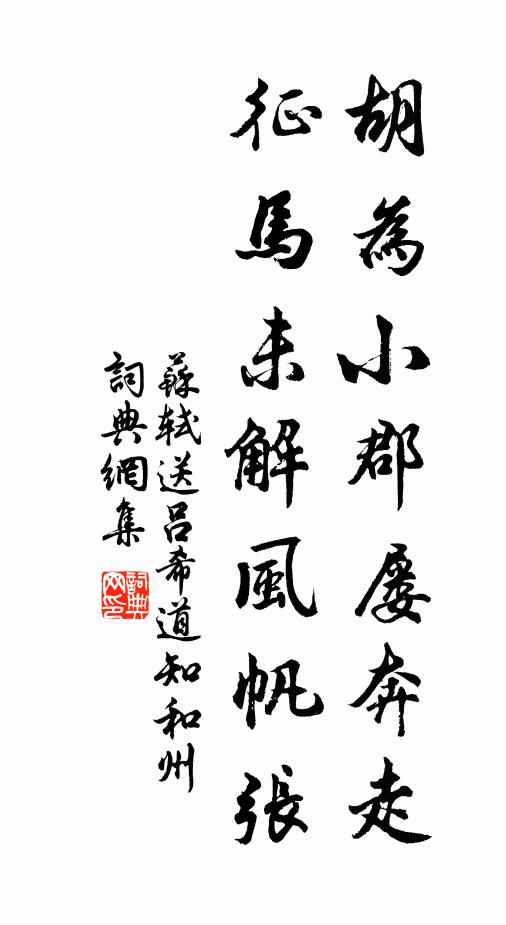 胡為小郡屢奔走
征馬未解風帆張
蘇軾送呂希道知和州
詞典網集
詞典網印